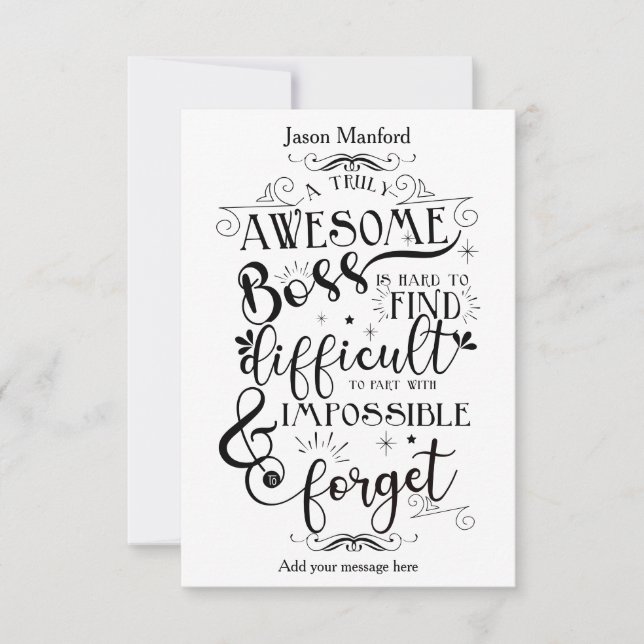 Jason Manford
A TRULY
AWESOME
Boss
IS HARD TO
FIND
difficult
TO PART WITH
& IMPOSSIBLE
TO
forget
Add your message here